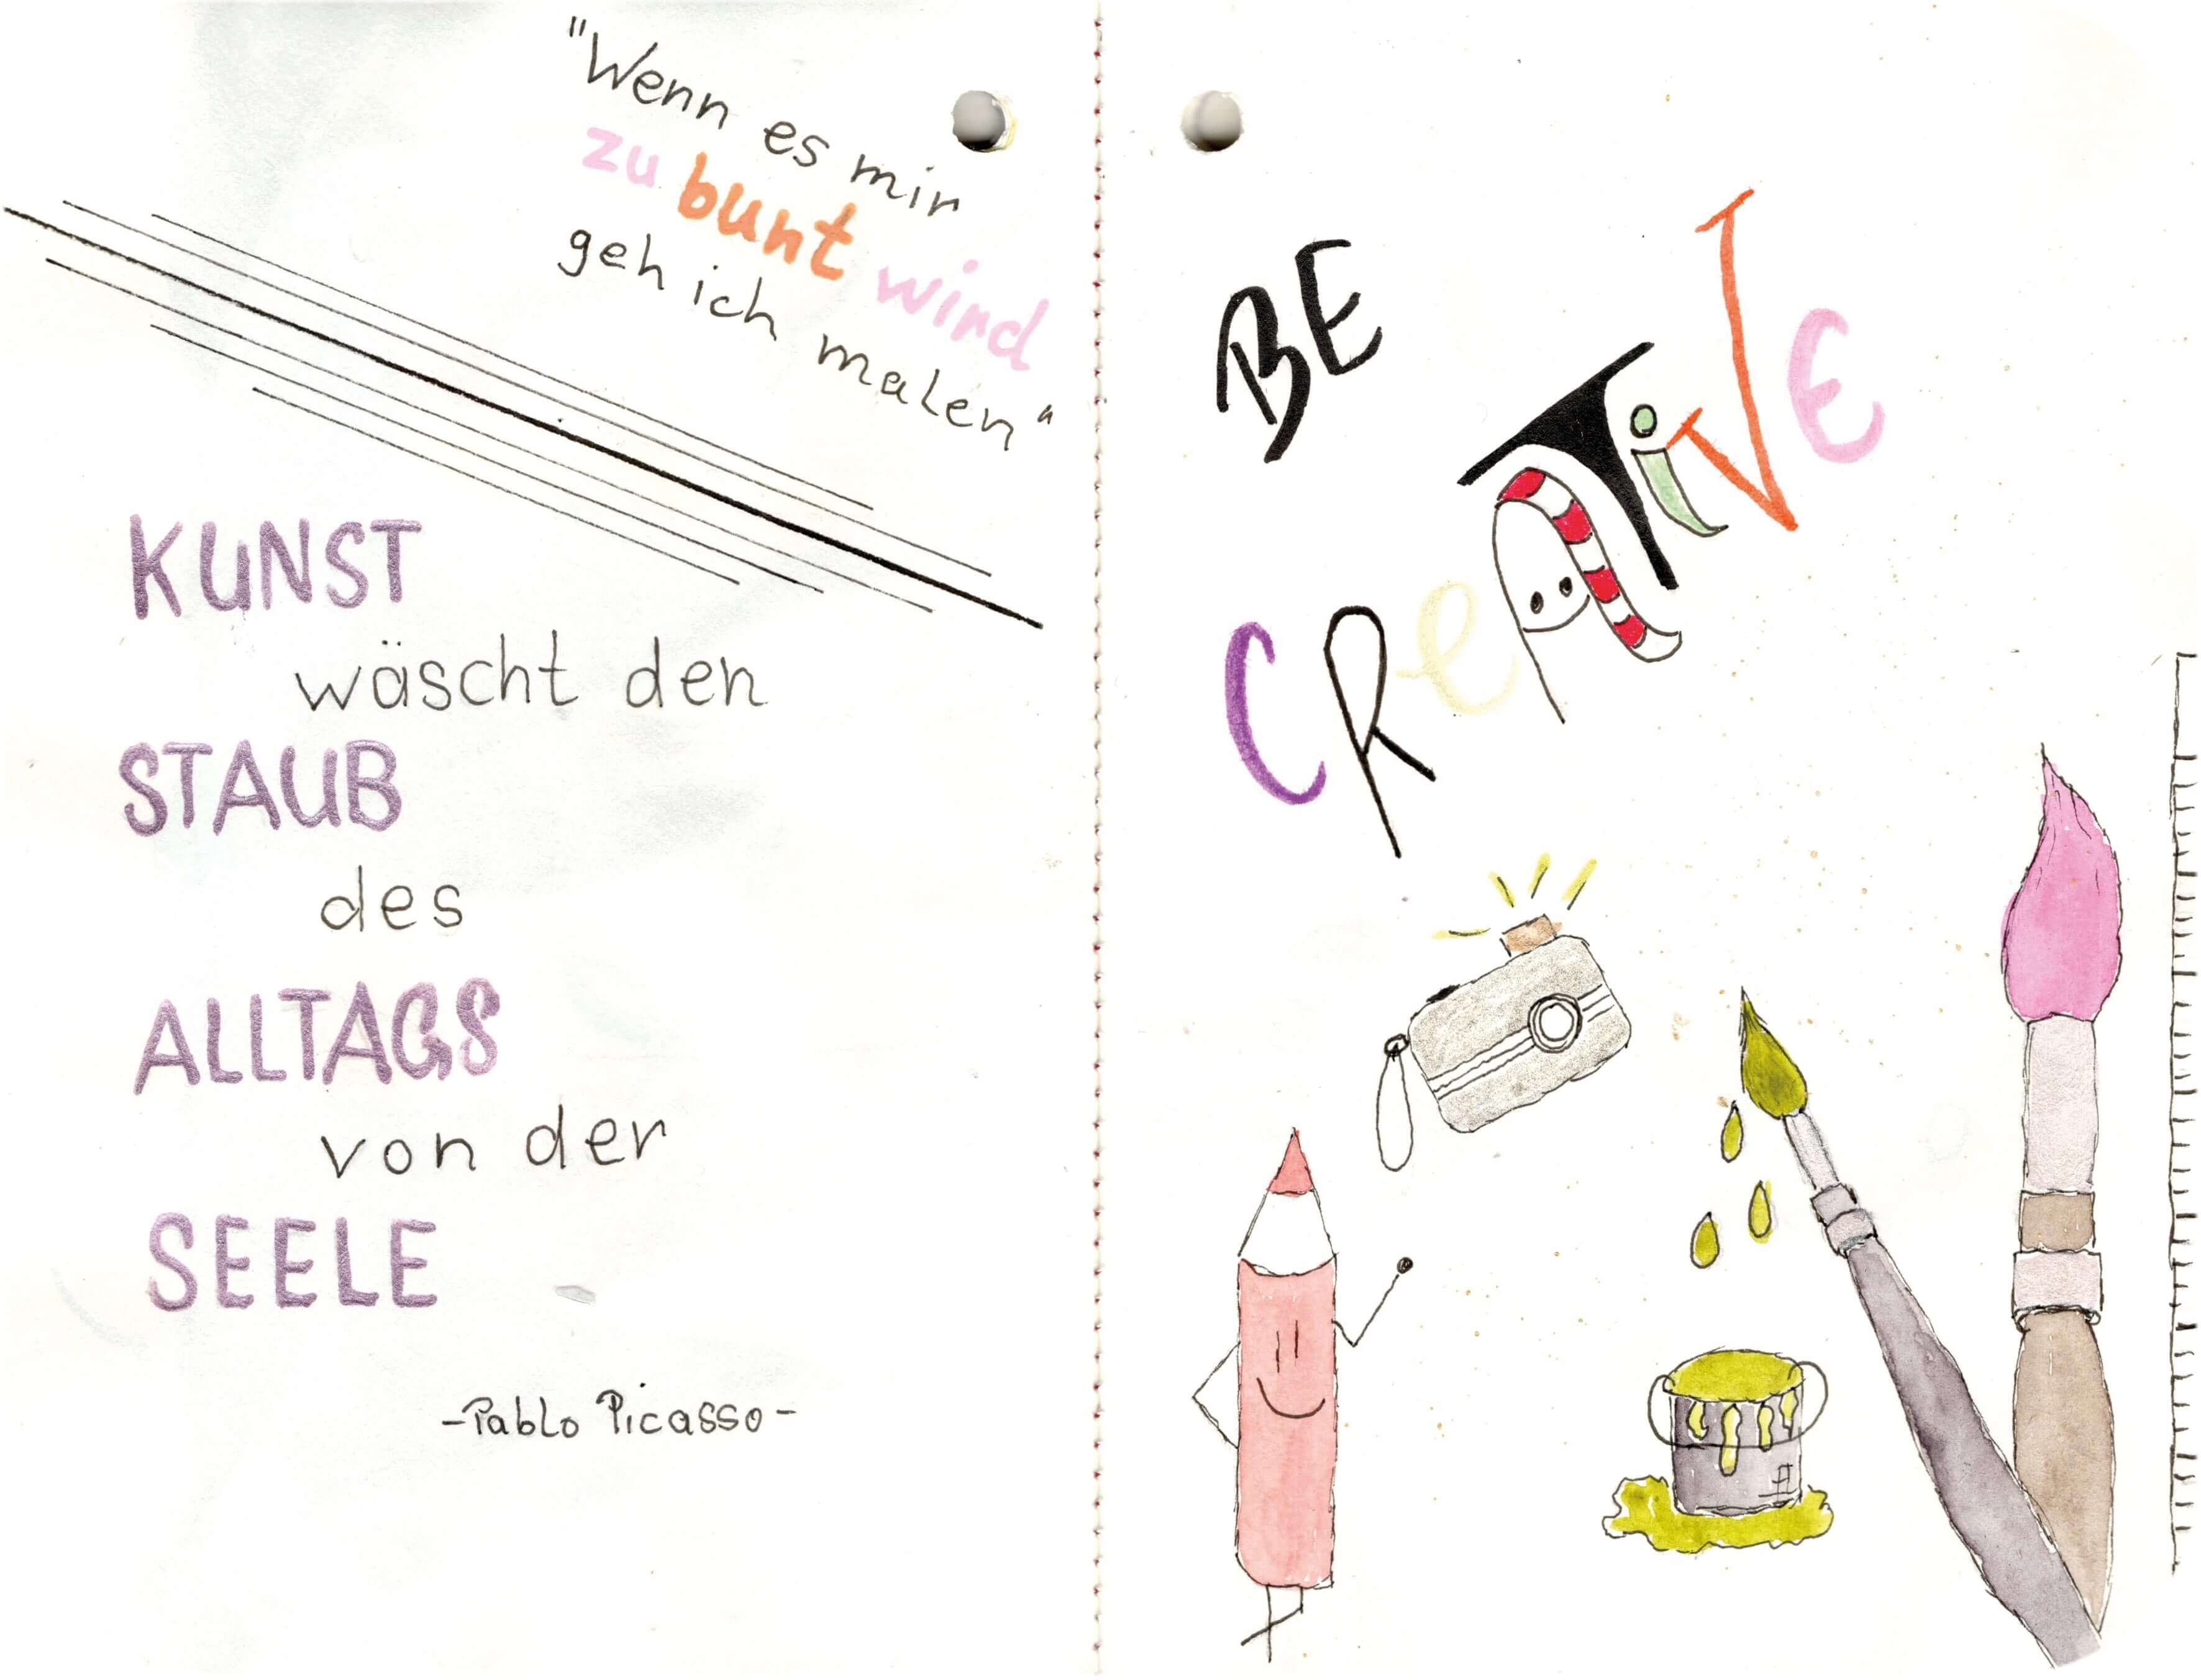 "Wenn es mir
zu bunt wird
geh ich malen"
KUNST
wäscht den
STAUB
des
ALLTAGS
von der
SEELE
-Pablo Picasso-
BE
CReATiVe